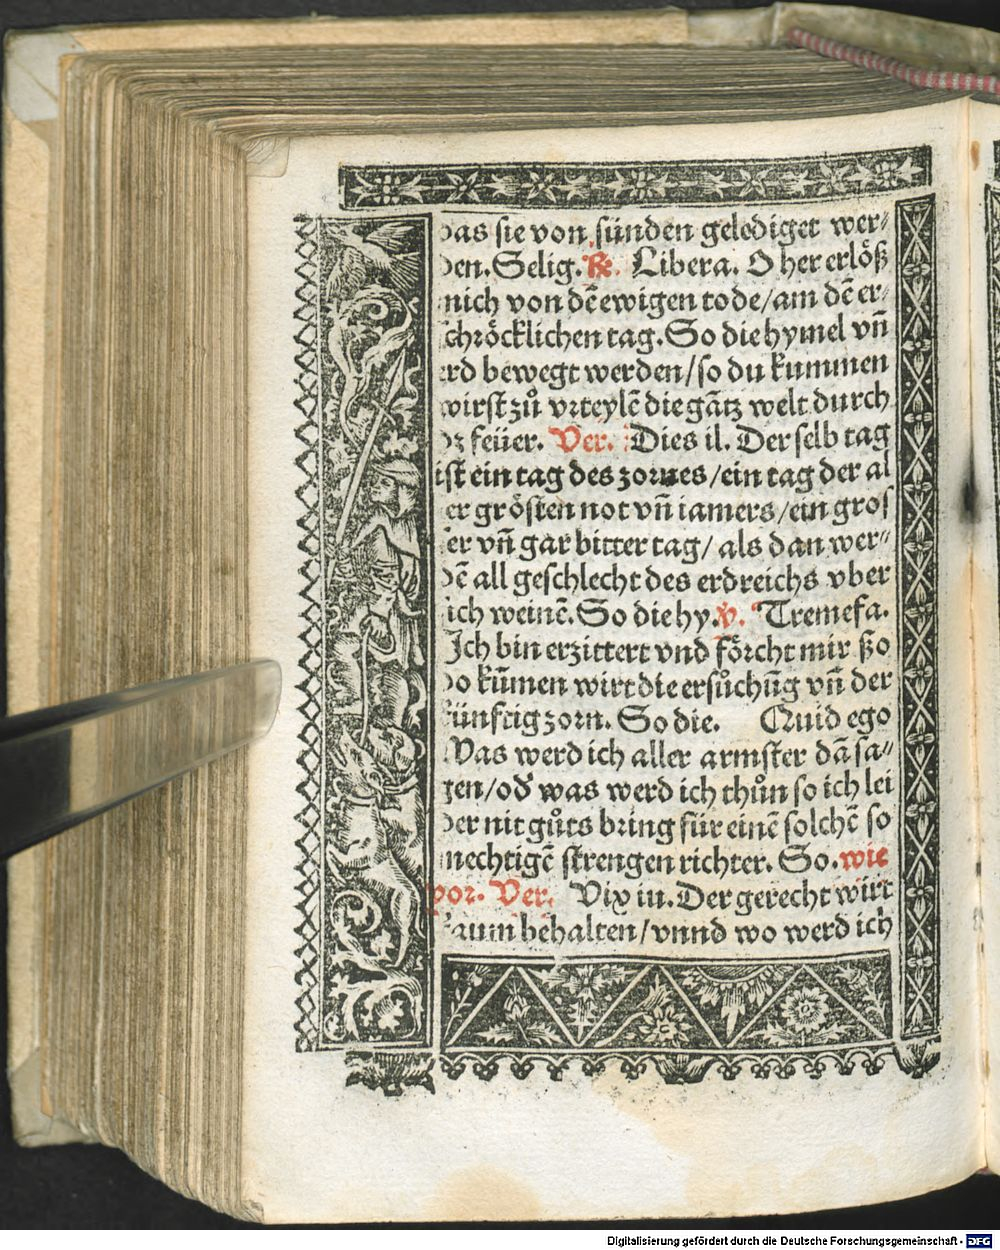 das sie von sünden gelediget wer⸗
den. Selig. ℟. Libera. O her erlöß
mich von dẽ ewigen tode/am dẽ er⸗
schröcklichen tag. So die hymel vñ
erd bewegt werden/so du kummen
wirst zů vrteylẽ die gãtz welt durch
dz feüer. Ver. Dies il. Der selb tag
ist ein tag des zornes/ein tag der al
er grösten not vñ iamers/ein gros
ser vñ gar bitter tag/als dan wer⸗
dẽ all geschlecht des erdreichs vber
sich weinẽ. So die hy. ℣. Tremefa.
Ich bin erzittert vnd förcht mir ßo
do kũmen wirt die ersůchũg vñ der
künftig zorn. So die. Quid ego
Was werd ich aller armster dã sa⸗
gen/oď was werd ich thůn so ich lei
der nit gůts bring für einẽ solchẽ so
mechtigẽ strengen richter. So. wie
vor. Ver. Vix iu. Der gerecht wirt
kaum behalten/vnnd wo werd ich
Digitalisierung gefördert durch die Deutsche Forschungsgemeinschaft - DFG